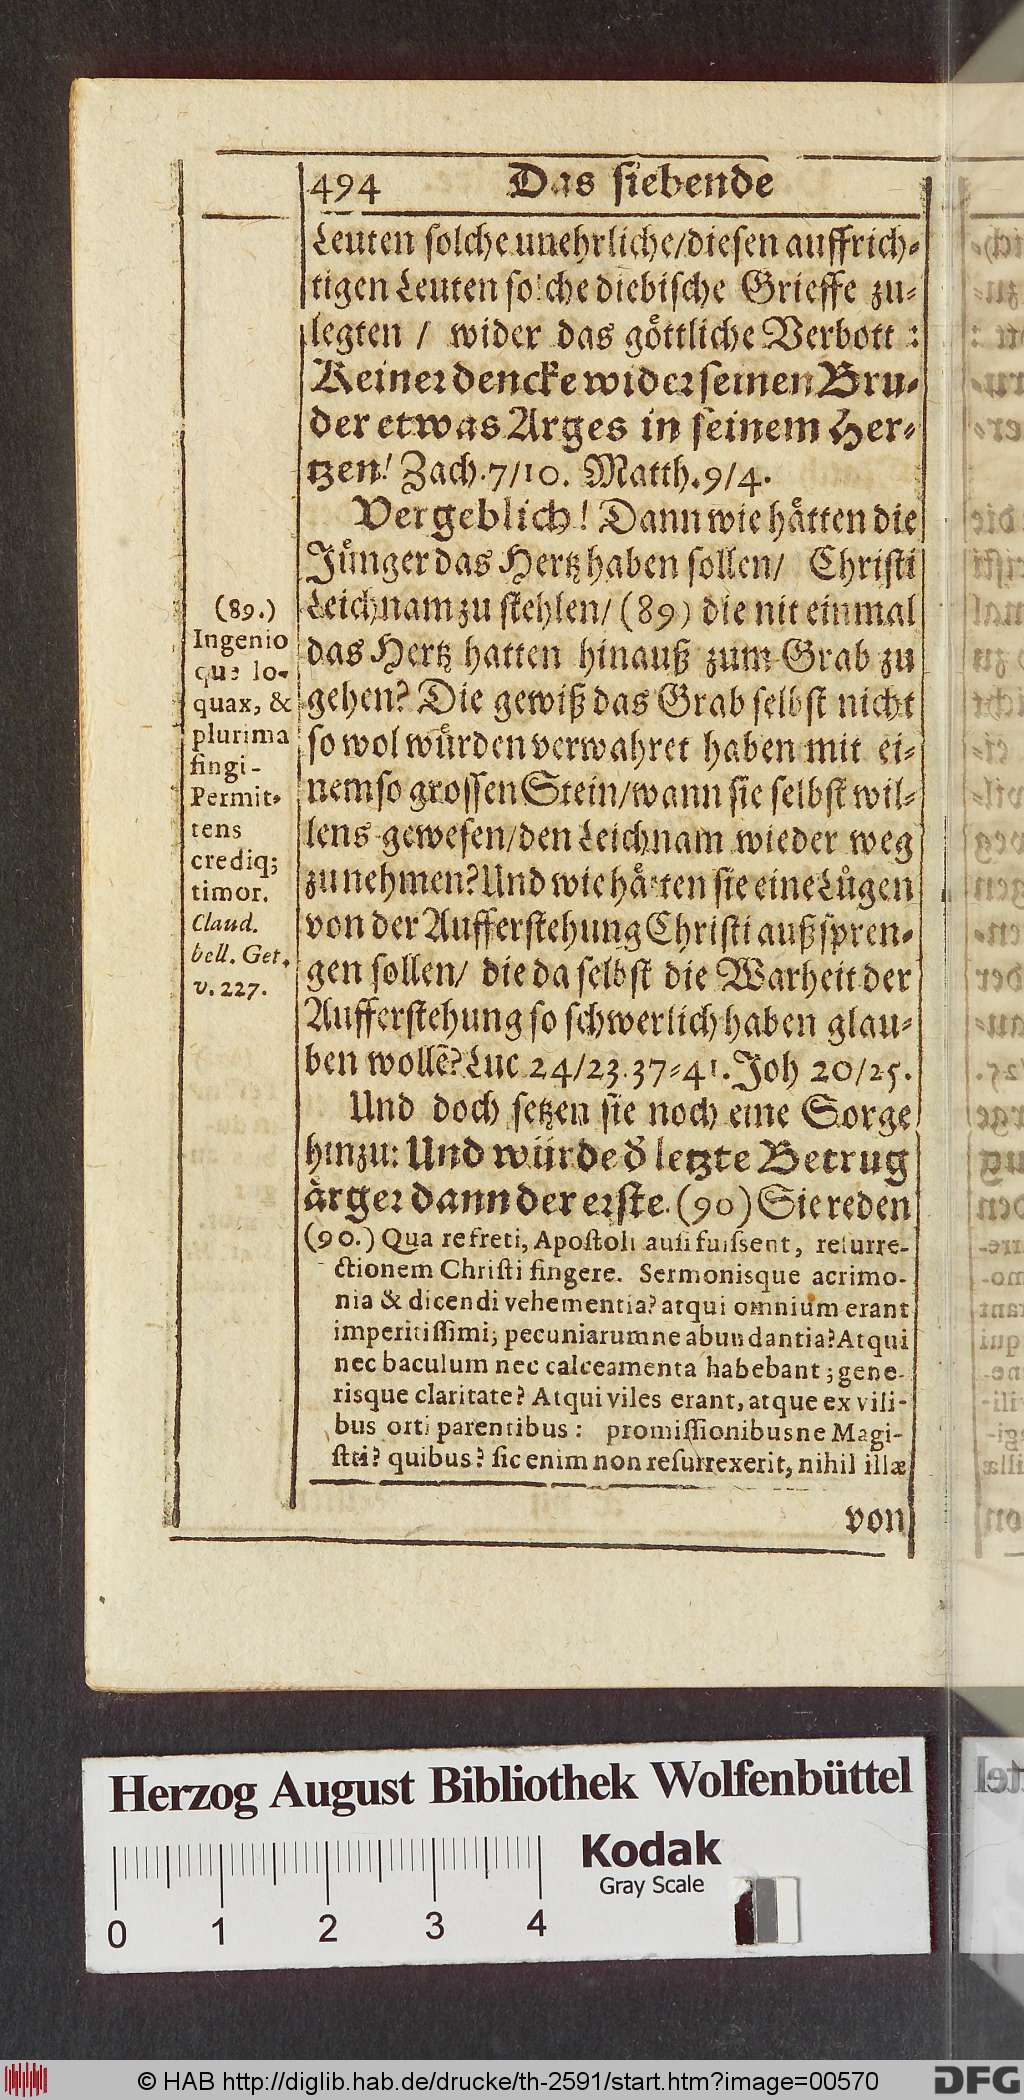 494 Das siebende
Leuten solche unehrliche/diesen auffrich-
tigen Leuten solche diebische Grieffe zu-
legten / wider das göttliche Verbott:
Keiner dencke wider seinen Bru-
der etwas Arges in seinem Her-
tzen! Zach. 7/10. Matth. 9/4.
Vergeblich! Dann wie hätten die
Jünger das Hertz haben sollen/ Christi
Leichnam zu stehlen/ (89) die nit einmal
das Hertz hatten hinauß zum Grab zu
gehen? Die gewiß das Grab selbst nicht
so wol würden verwahret haben mit ei-
nem so grossen Stein/wann sie selbst wil-
lens gewesen/den Leichnam wieder weg
zunehmen? Und wie hätten sie eine Lügen
von der Aufferstehung Christi außspren-
gen sollen/ die da selbst die Warheit der
Aufferstehung so schwerlich haben glau-
ben wollẽ? Luc. 24/23.37-41. Joh 20/25.
Und doch setzen sie noch eine Sorge
hinzu: Und würde d̃ letzte Betrug
ärger dann der erste. (90) Sie reden
(89.)
Ingenio
que lo-
quax, &
plurima
fingi-
Permit-
tens
crediq;
timor.
Claud.
bell. Get.
v. 227.
(90.) Qua re freti, Apostoli ausi fuissent, resurre-
ctionem Christi fingere. Sermonisque acrimo-
nia & dicendi vehementia? atqui omnium erant
imperitissimi; pecuniarumne abundantia? Atqui
nec baculum nec calceamenta habebant; gene-
risque claritate? Atqui viles erant, atque ex vili-
bus orti parentibus: promissionibusne Magi-
stri? quibus? sic enim non resurrexerit, nihil illæ
von
Herzog August Bibliothek Wolfenbüttel
Kodak
Gray Scale
0 1 2 3 4
© HAB http://diglib.hab.de/drucke/th-2591/start.htm?image=00570
DFG